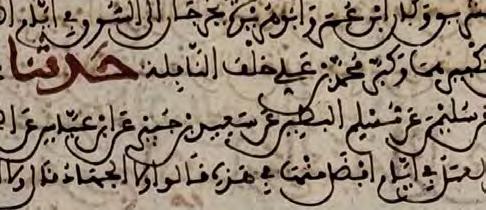 وكان ابن عمر وابو هريرة يخرجان الى السوق في ايام
بتكبيرهما وكبر محمد بن علي خلف النافلة حدثنا
عن سليمن عن مسلم البطين عن سعيد بن جبير عن ابن عباس عن
العمل في ايام افضل منها في هذه قالوا ولا الجهاد قال ولا